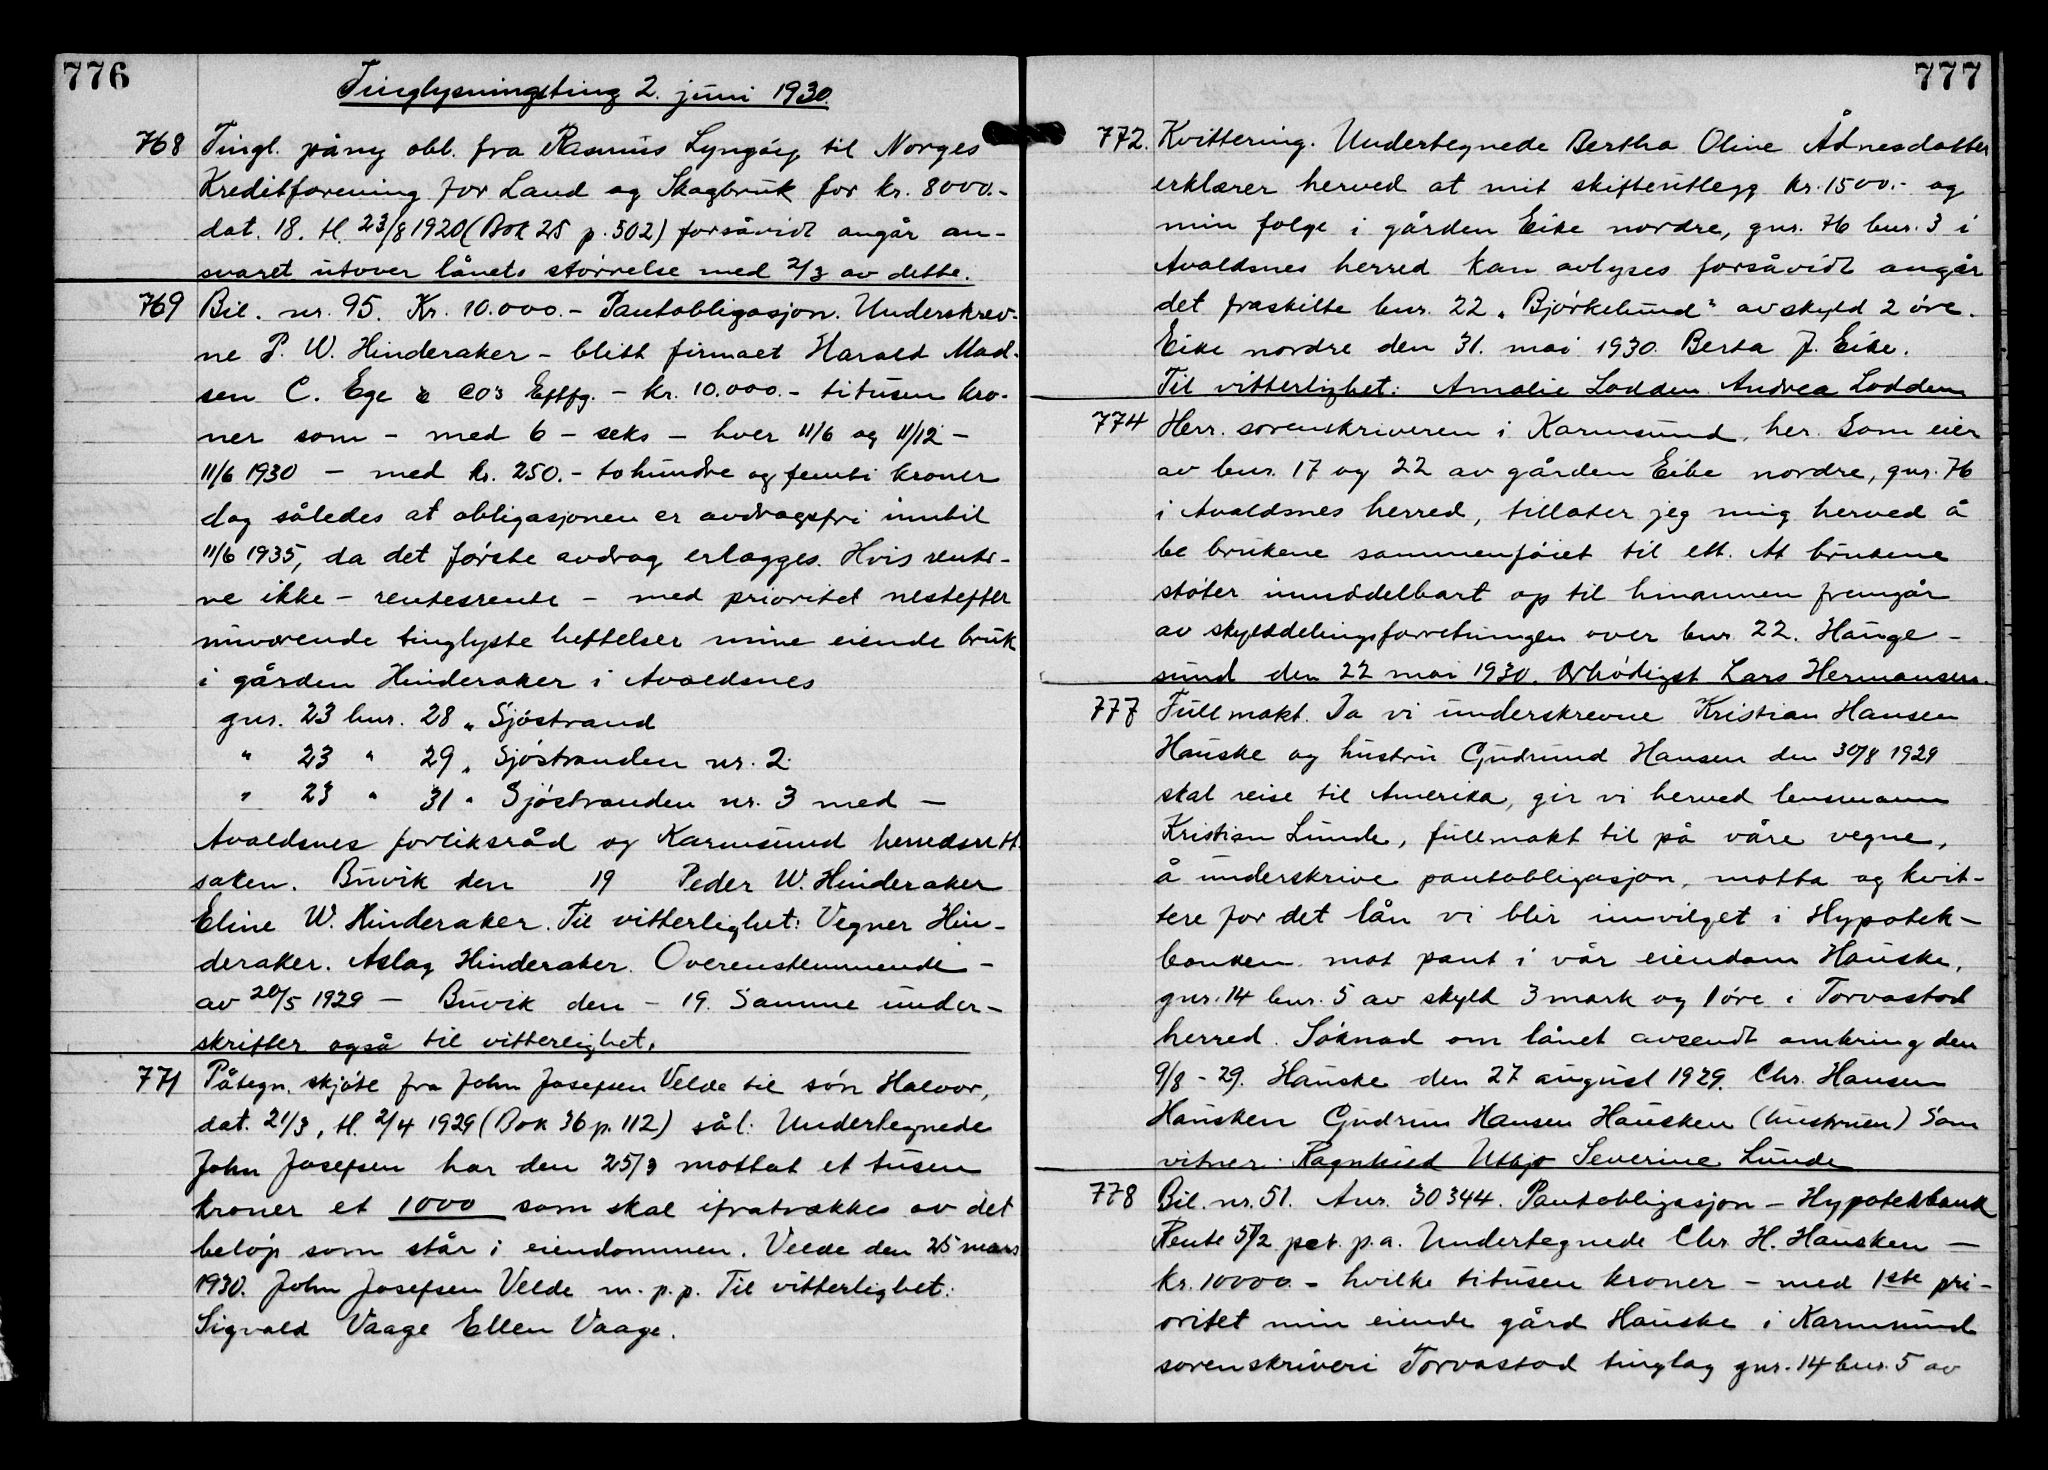 776
Tinglysningsting 2. juni 1930.
768 Tingl. påny obl. fra Rasmus Lyngøy til Norges
Kreditforening for Land og Skogbruk for kr. 8000.-
dat. 18. tl. 23/8 1920 (Bok 25 p. 502) forsåvidt angår an-
svaret utover lånets størrelse med 2/3 av dette.
769 Bil. nr. 95. Kr. 10.000.- Pantobligasjon. Underskrev-
ne P. W. Hinderaker - blitt firmaet Harald Mad-
sen C. Ege & Co's Eftfg. - kr. 10.000.- titusen kro-
ner som - med 6 - seks - hver 11/6 og 11/12 -
11/6 1930 - med kr. 250.- tohundre og femti kroner
dog således at obligasjonen er avdragsfri inntil
11/6 1935, da det første avdrag erlægges. Hvis rente-
ne ikke - rentesrente - med prioritet nestefter
nuværende tinglyste heftelser mine eiende bruk
i gården Hinderaker i Avaldsnes
gnr. 23 bnr. 28 „ Sjøstrand
" 23 " 29 „ Sjøstranden nr. 2.
" 23 " 31 " Sjøstranden nr. 3 med -
Avaldsnes forliksråd og Karmsund herredsrett
saken. Buvik den 19 Peder W. Hinderaker
Eline W. Hinderaker. Til vitterlighet: Vegner Hin-
deraker. Aslag Hinderaker. Overenstemmende -
av 20/5 1929 - Buvik den - 19. Samme under-
skrifter også til vitterlighet.
771 Påtegn. skjøte fra John Josefsen Velde til søn Halvor,
dat. 21/3, tl. 2/4 1929 (Bok 36 p. 112) sål: Undertegnede
John Josefsen har den 25/3 mottat et tusen
kroner et 1000 som skal ifratrækkes av det
beløp som står i eiendommen. Velde den 25 mars
1930. John Josefsen Velde m. p. p. Til vitterlighet:
Sigvald Vaage Ellen Vaage.
777
772. Kvittering. Undertegnede Bertha Oline Ådnesdatter
erklærer herved at mit skifteutlegg kr. 1500.- og
min følge i gården Eike nordre, gnr. 76 bnr. 3 i
Avaldsnes herred kan avlyses forsåvidt angår
det fraskilte bnr. 22 „Bjørkelund" av skyld 2 øre.
Eike nordre den 31. mai 1930. Berta J. Eike.
Til vitterlighet: Amalie Lodden. Andrea Lodden
774 Herr. sorenskriveren i Karmsund, her. Som eier
av bnr. 17 og 22 av gården Eike nordre, gnr. 76
i Avaldsnes herred, tillater jeg mig herved å
be brukene sammenføiet til ett. At brukene
støter inmiddelbart op til hinannen fremgår
av skylddelingsforretningen over bnr. 22. Hauge-
sund den 22 mai 1930. Ærbødigst Lars Hermansen.
777 Fullmakt. Da vi underskrevne Kristian Hansen
Hauske og hustru Gudrund Hansen den 30/8 1929
skal reise til Amerika, gir vi herved lensmann
Kristian Lunde, fullmakt til på våre vegne,
å underskrive pantobligasjon, motta og kvit-
tere for det lån vi blir innvilget i Hypotek-
banken mot pant i vår eiendom Hauske,
gnr. 14 bnr. 5 av skyld 3 mark og 1 øre i Torvastad
herred. Søknad om lånet avsendt omkring den
9/8 - 29. Hauske den 27 august 1929. Chr. Hansen
Hausken Gudrun Hansen Hausken (hustruen) Som
vitner: Ragnhild Utbjo Severine Lunde
778 Bil. nr. 51. Anr. 30344. Pantobligasjon - Hypotekbank
Rente 5 1/2 pct. p. a. Undertegnede Chr. H. Hausken -
kr. 10000.- hvilke titusen kroner - med 1ste pri-
oritet min eiende gård Hauske i Karmsund
sorenskriveri Torvastad tinglag gnr. 14 bnr. 5 av